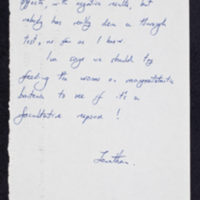 effects, with negative results, but
nobody has really done a thorough
test, as far as I know.
I'm sure we should try
feeding the worms on magnetostatic
bacteria to see if it's a
facultative response!
Jonathan.